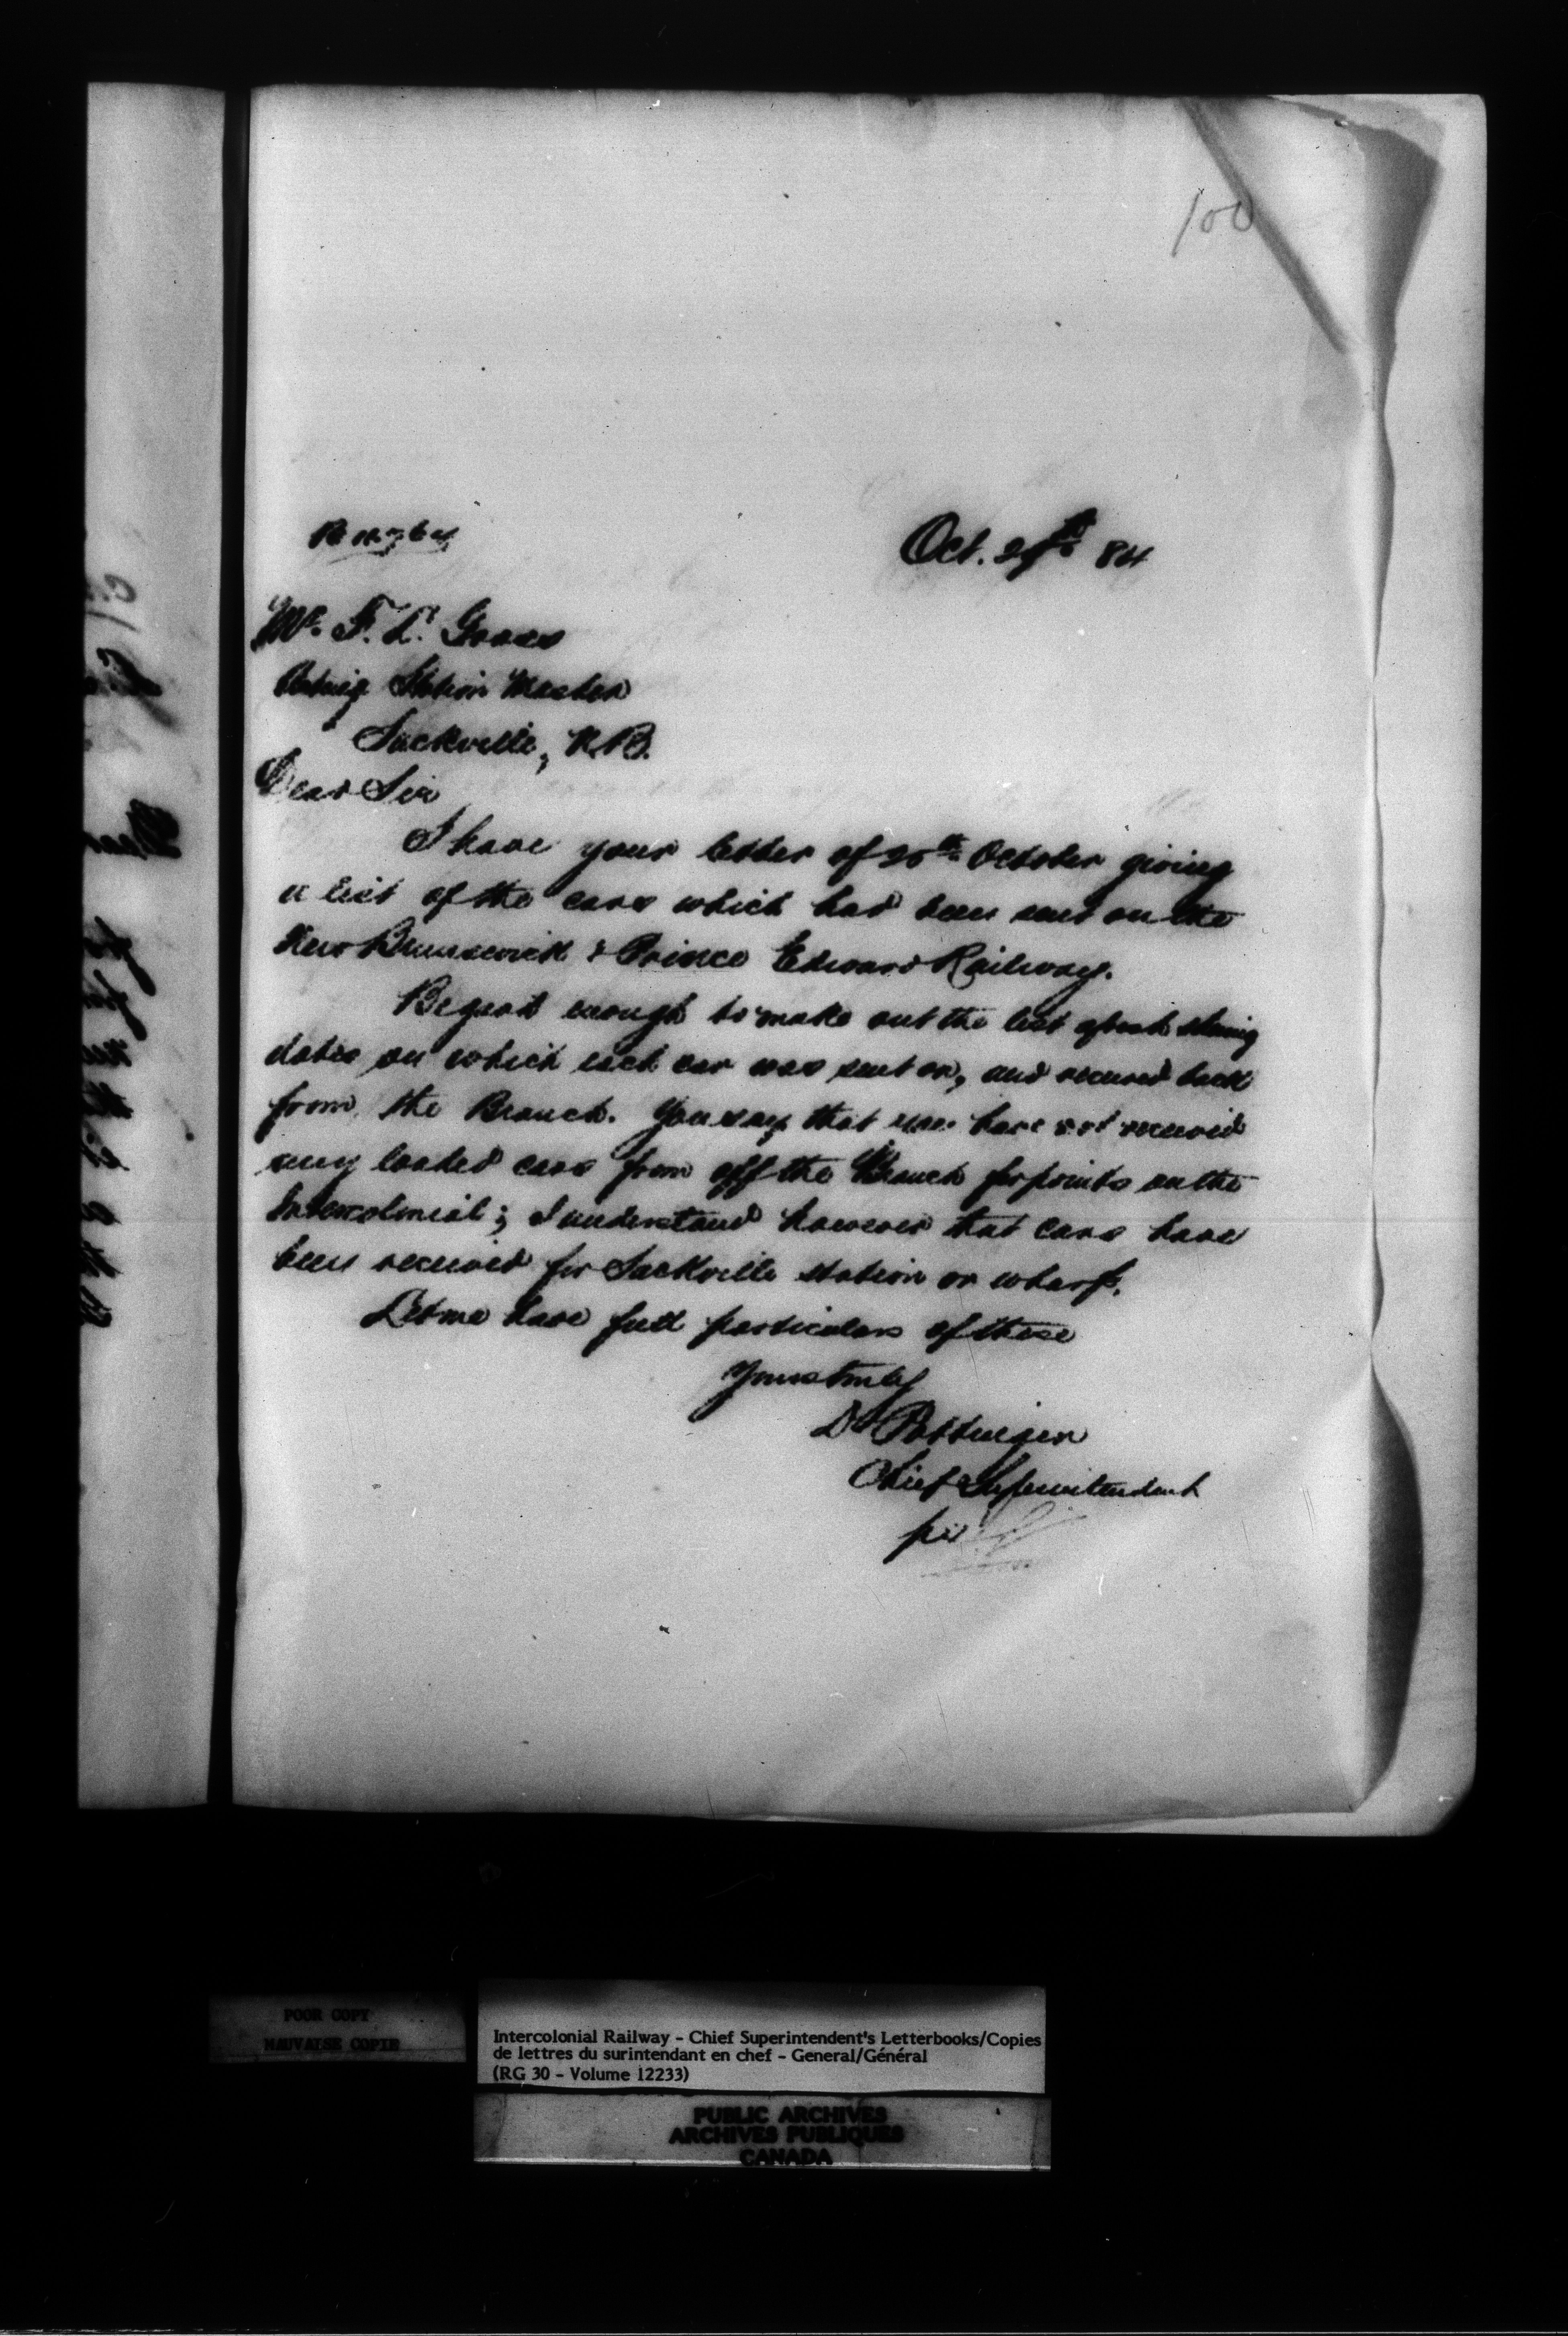 100
Oct. 84
Mr. F. L.
Acting Station Master
Sackville, N.B.
Dear Sir
I have your letter of October giving
a list of the cars which had been sent on the
New Brunswick & Prince Edward Railway.
Be good enough to make out the list afresh showing
dates on which each car was sent on, and received back
from the Branch. You say that you have not received
any loaded cars from off the Branch for points on the
Intercolonial; I understand however that cars have
been received for Sackville station or wharf.
Let me have full particulars of these
Yours truly
D Pottinger
Chief Superintendent
per
POOR COPY
MAUVAISE COPIE
Intercolonial Railway - Chief Superintendent's Letterbooks/Copies
de lettres du surintendant en chef - General/Général
(RG 30 - Volume 12233)
PUBLIC ARCHIVES
ARCHIVES PUBLIQUES
CANADA